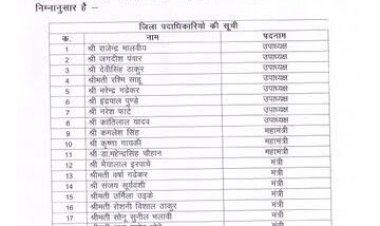 निम्नानुसार है –
जिला पदाधिकारियों की सूची
क. नाम पदनाम
1 श्री राजेन्द्र मालवीय उपाध्यक्ष
2 श्री जगदीश पंवार उपाध्यक्ष
3 श्री देवीसिंह ठाकुर उपाध्यक्ष
4 श्रीमती रश्मि साहू उपाध्यक्ष
5 श्री नरेन्द्र गढेकर उपाध्यक्ष
6 श्री इंद्रपाल पुण्डे उपाध्यक्ष
7 श्री नरेश फाटे उपाध्यक्ष
8 श्री कांतिलाल यादव उपाध्यक्ष
9 श्री कमलेश सिंह महामंत्री
10 श्री कृष्णा गायकी महामंत्री
11 श्री डा.महेन्द्रसिंह चौहान महामंत्री
12 श्री मेघालाल इरपाचे मंत्री
13 श्रीमती वर्षा गढेकर मंत्री
14 श्री संजय सूर्यवंशी मंत्री
15 श्रीमती उर्मिला उइके मंत्री
16 श्रीमती रोशनी विशाल ठाकुर मंत्री
17 श्रीमती सोनू सुनील भलावी मंत्री